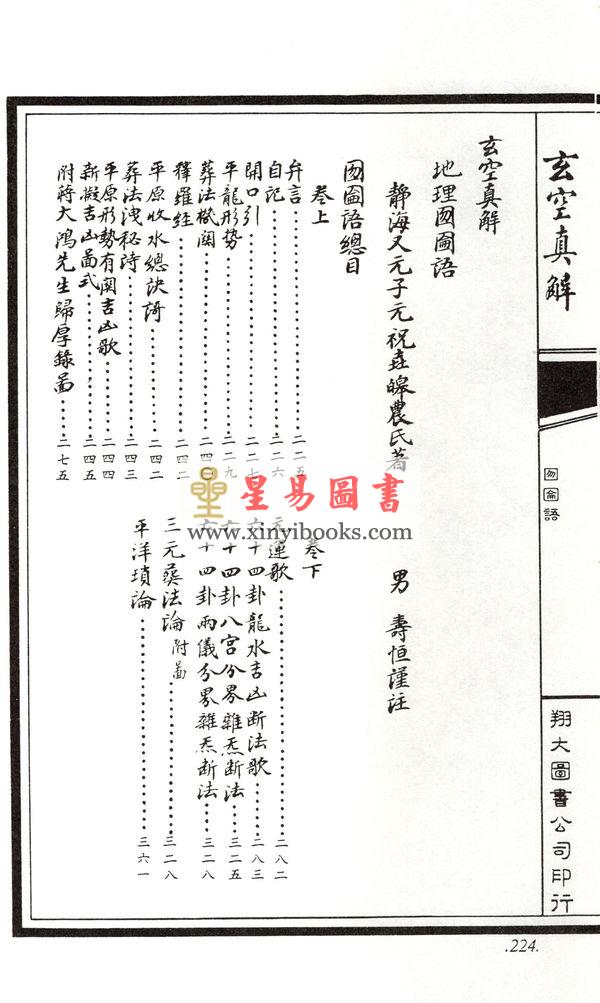 玄空真解
囫圇語
翔大圖書公司印行
玄空真解
地理囫圇語
靜海又元子元祝垚皞農氏著 男 壽恒謹注
囫圇語總目
卷上
弁言 二二五
自記 二二六
開口引 二二七
平龍形势 二二九
葬法機関 二四〇
釋羅經 二四二
平原收水總決謌 二四二
葬法洩秘詩 二四三
平原形势有関吉凶歌 二四四
新擬吉凶啚式 二四五
附蔣大鴻先生歸厚錄啚 二七五
卷下
元運歌 二八二
六十四卦龍水吉凶断法歌 二八三
六十四卦八宫分界雜炁断法 三二五
六十四卦兩儀分界雜炁断法 三二八
三元葬法論 附啚 三二八
平洋瑣論 三六一
星易圖書
www.xinyibooks.com
.224.